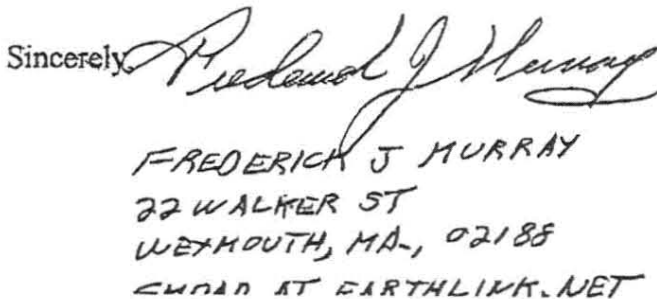 Sincerely, Frederick J Murray
FREDERICK J MURRAY
22 WALKER ST
WEYMOUTH, MA., 02188
AT EARTHLINK.NET